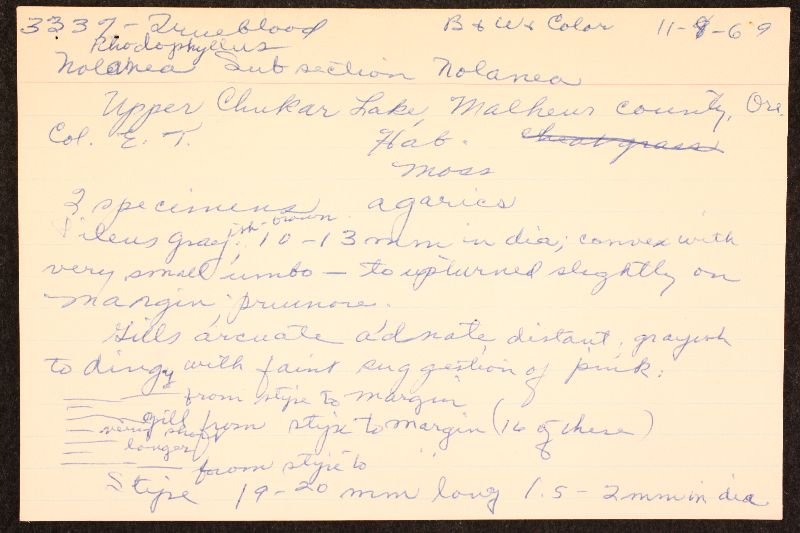 3337 - Trueblood B & W & Color 11-8-69
Rhodophyllus
Nolanea Subsection Nolanea
Upper Chukar Lake, Malheur county, Ore.
Col. E. T. Hab. cheat grass
Moss
2 specimens agarics
Pileus grayish-brown 10-13 mm in dia; convex with
very small umbo - to upturned slightly on
margin; pruinose.
Gills arcuate adnate, distant, grayish
to dingy with faint suggestion of pink:
from stipe to margin
gill from stipe to margin (16 of these)
very short
longer
from stipe to " "
Stipe 19-20 mm long 1.5-2 mm in dia